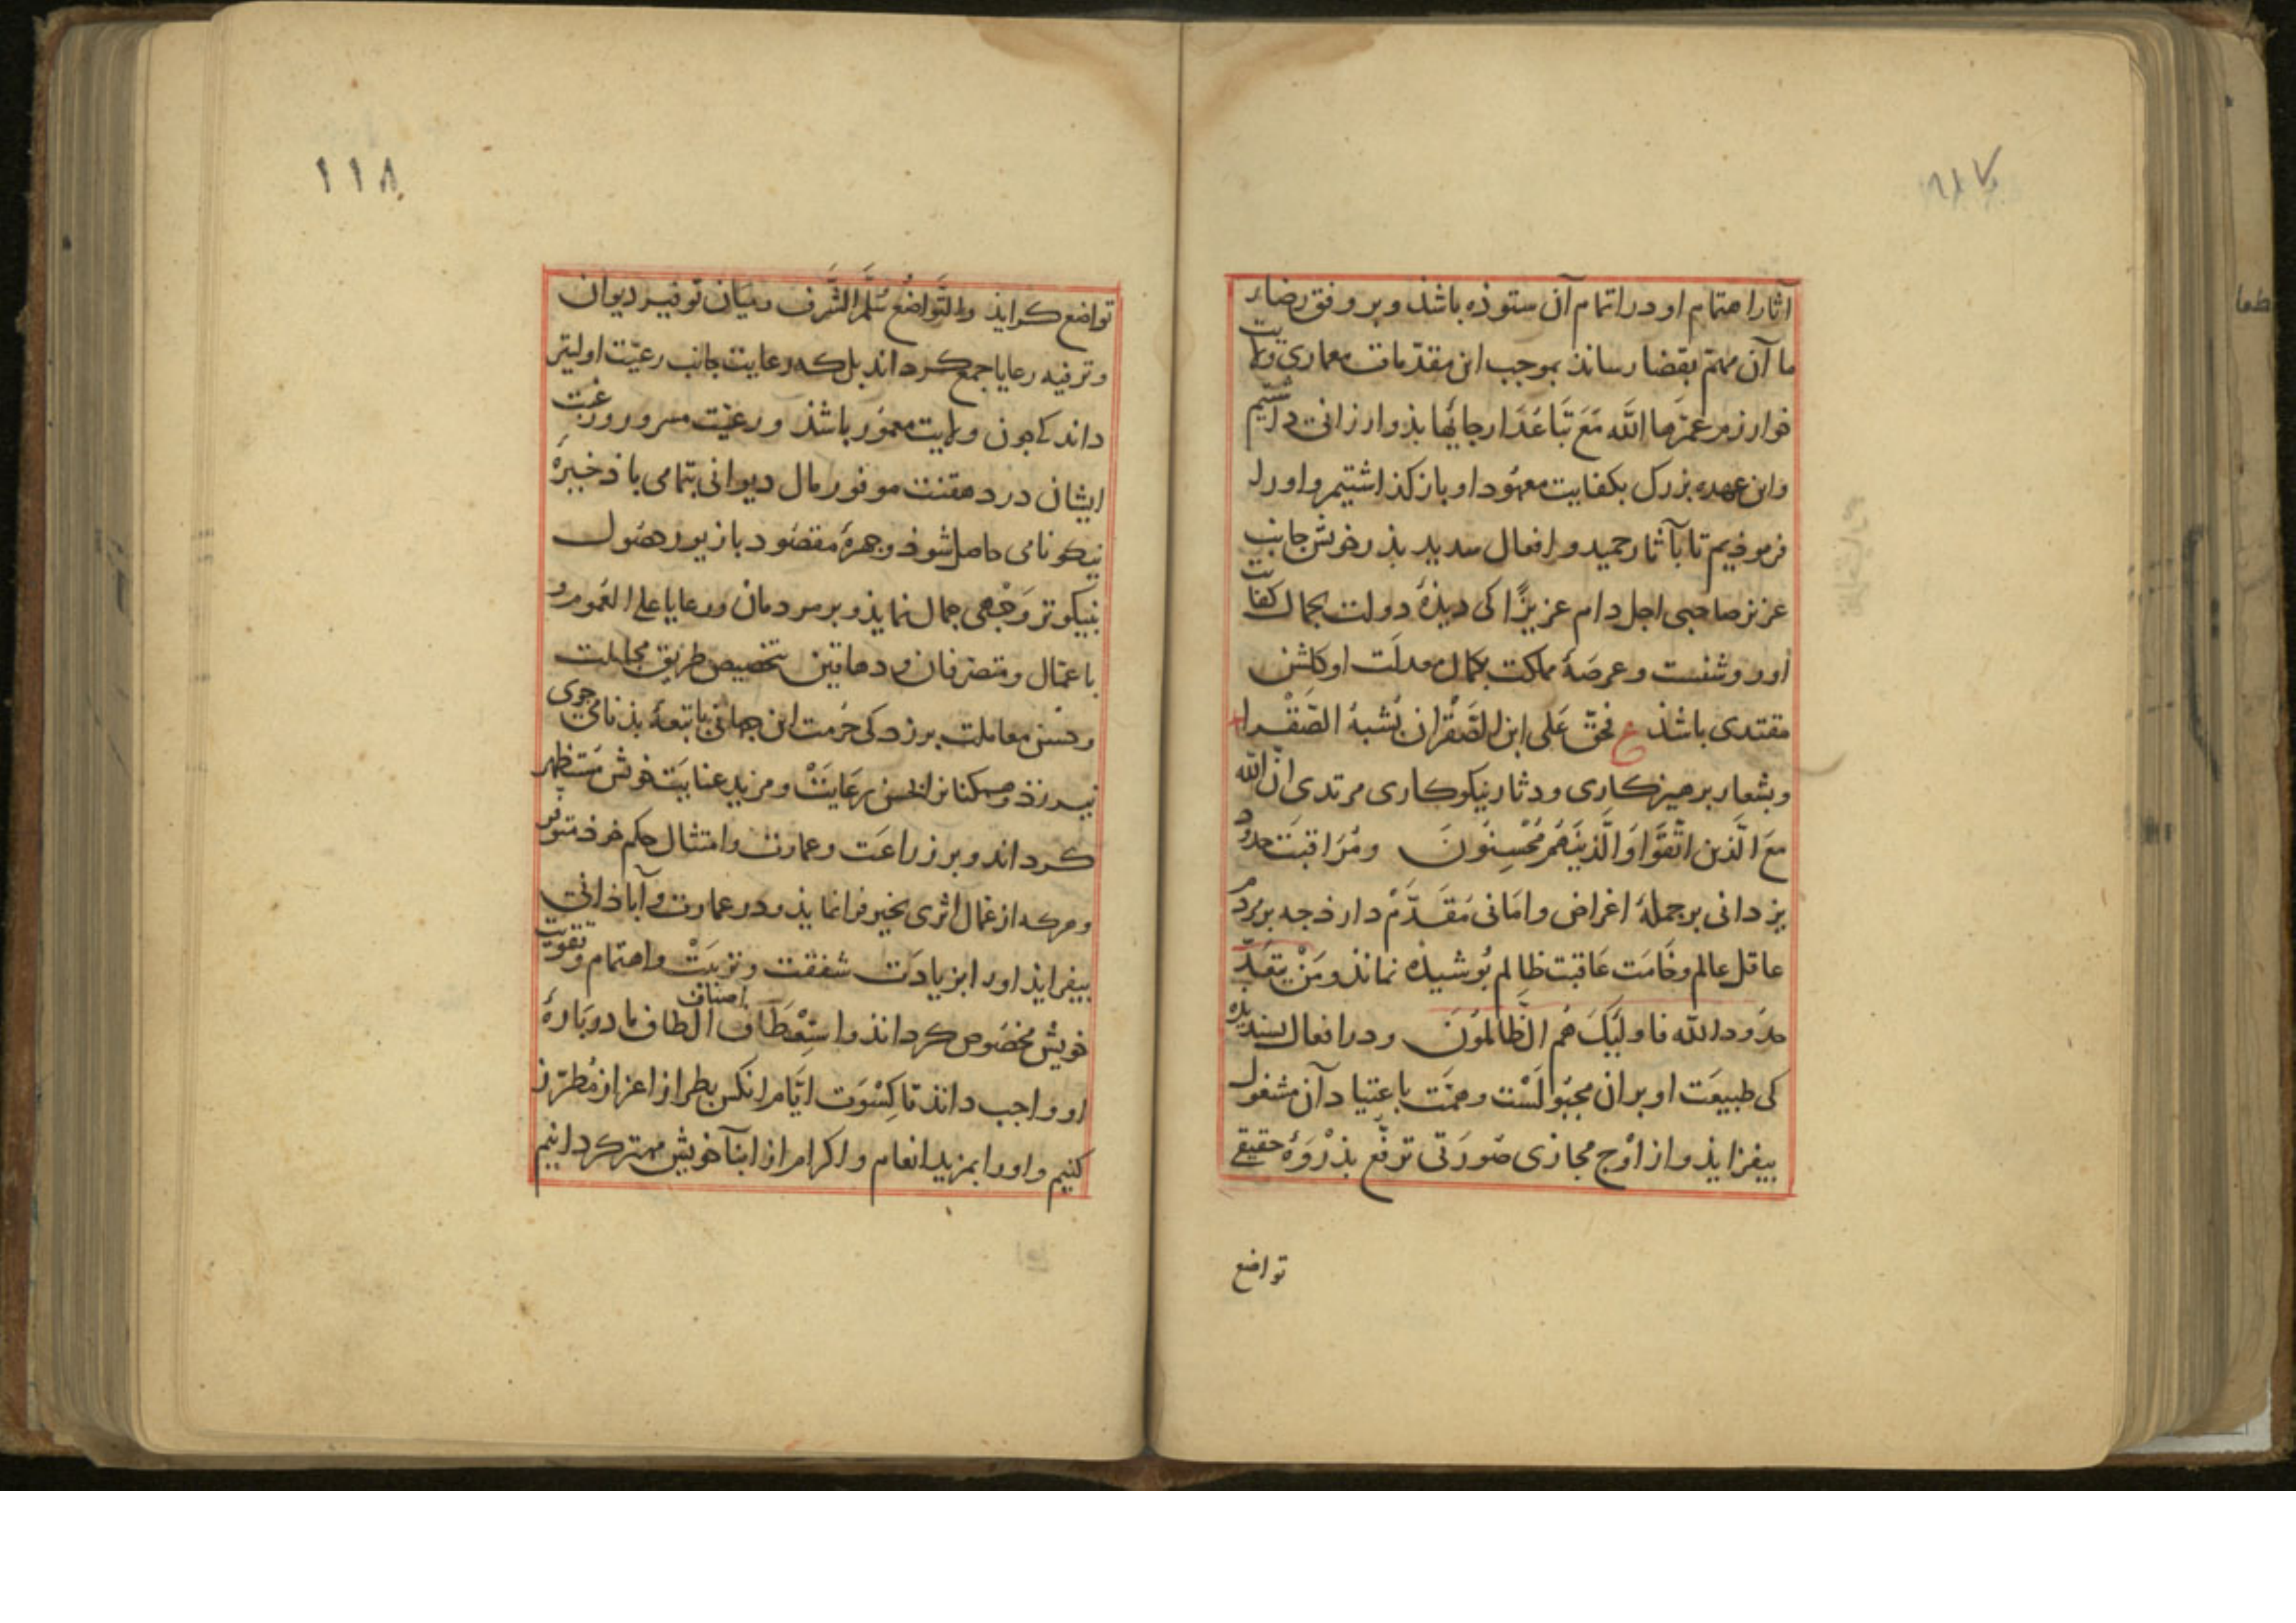 آثار اهتمام او در اتمام آن ستوذه باشذ و بر وفق رضاء
ما آن مهم بقضا رساند بموجب این مقدمات معماری ولایت
خوارزم عمرها الله مع تباعد ارجائها بذو ارزانی داشتیم
و این عهده بزرک بکفایت معهود او باز کذاشتیم و او را
فرموذیم تا بآثار حمید و افعال سدید بذر خوش جانب
عزیز صاحبی اجل دام عزیزا کی دیذۀ دولت بجمال کفایت
او روشنست و عرصۀ مملکت بکمال معدلت او کلشن
مقتدی باشذ ع فحق علی ابن الصقر ان یشبه الصقرا
و بشعار برهیزکاری و دثار نیکوکاری مرتدی ان الله
مع الذین اتقوا و الذین هم محسنون و مراقبت حدود
یزدانی بر جملۀ اغراض و امانی مقدم دارذ جه بر مرد
عاقل عالم وخامت عاقبت ظالم بوشیذه نماند و من یتعد
حدود الله فاولیک هم الظالمون و در افعال بسندیده
کی طبیعت او بران مجبولست و همت باعتیاد آن مشغول
بیفزایذ و از اوج مجازی صورتی ترفع بذروۀ حقیقی
تواضع
۱۱۸
تواضع کراید والتواضع سلم الشرف و میان توفیر دیوان
و ترفیه رعایا جمع کرداند بل که رعایت جانب رعیت اولیتر
داند کی جون ولایت معمور باشذ و رعیت مسرور و رغبت
ایشان در دهقنت موفور مال دیوانی بتمامی با ذخیرۀ
نیکو نامی حاصل شوذ و جهرۀ مقصود با زیور حصول
بنیکوتر وجهی جمال نمایذ و بر مردمان و رعایا علی العموم و
با عمال و متصرفان و دهاقین بتخصیص طریق مجاملت
و حسن معاملت برزد کی حرمت این جهانی با تبعۀ بذنامی جوی
نیرزذ و همکنانرا بحسن رعایت و مزید عنایت خویش مستظهر
کرداند و بر زراعت و عمارت و امتثال حکم خرذ متوفر
و هرکه از عمال اثری بخیر فرا نمایذ و در عمارت و آباذانی
بیفزایذ اورا بزیادت شفقت و تربیت و اهتمام و تقویت
خویش مخصوص کردانذ و استعطاف اصناف الطاف ما دربارۀ
او واجب داند تا کسوت ایام انکس بطراز اعزاز مطرز
کنیم و اورا بمزید انعام و اکرام از ابنآ خویش مهتر کردانیم